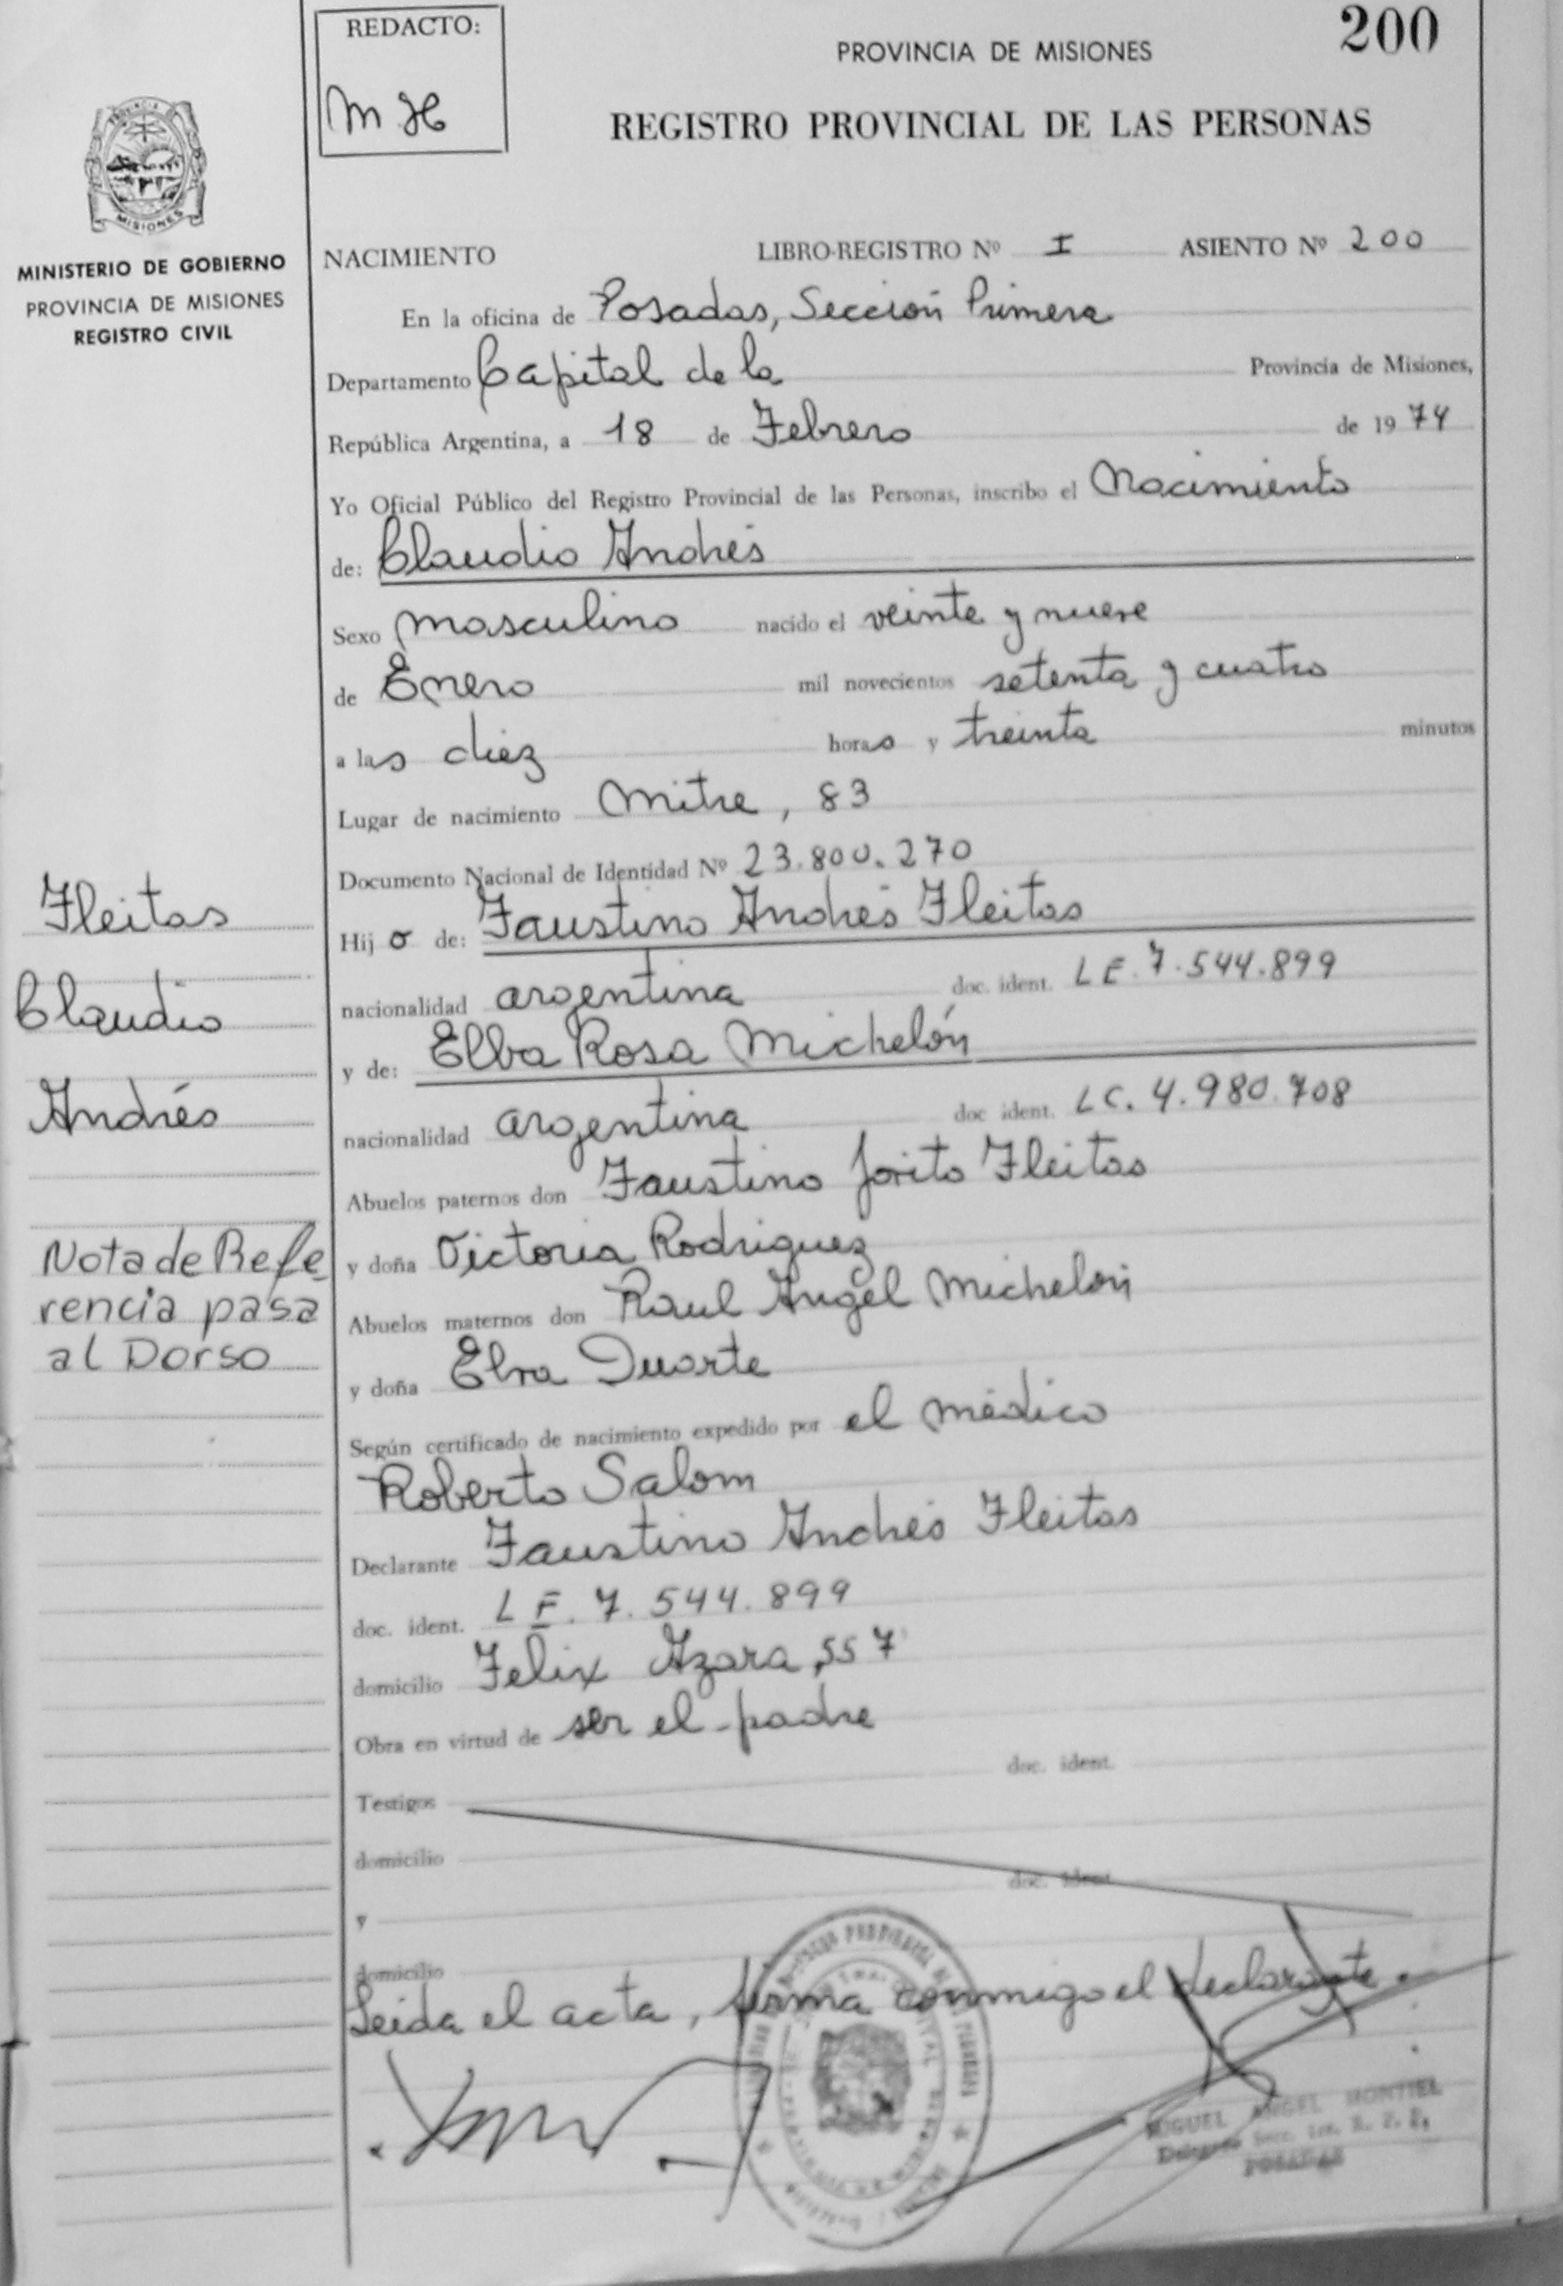 REDACTO:
M H
200
PROVINCIA DE MISIONES
REGISTRO PROVINCIAL DE LAS PERSONAS
MISIONES
MINISTERIO DE GOBIERNO
PROVINCIA DE MISIONES
REGISTRO CIVIL
NACIMIENTO LIBRO-REGISTRO Nº I ASIENTO Nº 200
En la oficina de Posadas, Sección Primera
Departamento Capital de la Provincia de Misiones,
República Argentina, a 18 de Febrero de 1974
Yo Oficial Público del Registro Provincial de las Personas, inscribo el Nacimiento
de: Claudio Andrés
Sexo masculino nacido el veinte y nueve
de Enero mil novecientos setenta y cuatro
a las diez horas y treinta minutos
Lugar de nacimiento Mitre, 83
Documento Nacional de Identidad Nº 23.800.270
Hijo de: Faustino Andrés Fleitas
nacionalidad argentina doc. ident. LE. 7.544.899
y de: Elba Rosa Michelón
nacionalidad argentina doc ident. LC. 4.980.708
Abuelos paternos don Faustino Jorito Fleitas
y doña Victoria Rodriguez
Abuelos maternos don Raul Angel Michelón
y doña Elva Duarte
Según certificado de nacimiento expedido por el médico
Roberto Salom
Declarante Faustino Andrés Fleitas
doc. ident. LE. 7.544.899
domicilio Felix Azara, 557
Obra en virtud de ser el padre
doc. ident.
Testigos
domicilio
doc. ident
y
domicilio
Leida el acta, firma conmigo el declarante.
MIGUEL ANGEL MONTIEL
POSADAS
Fleitas
Claudio
Andrés
Nota de Refe
rencia pasa
al Dorso